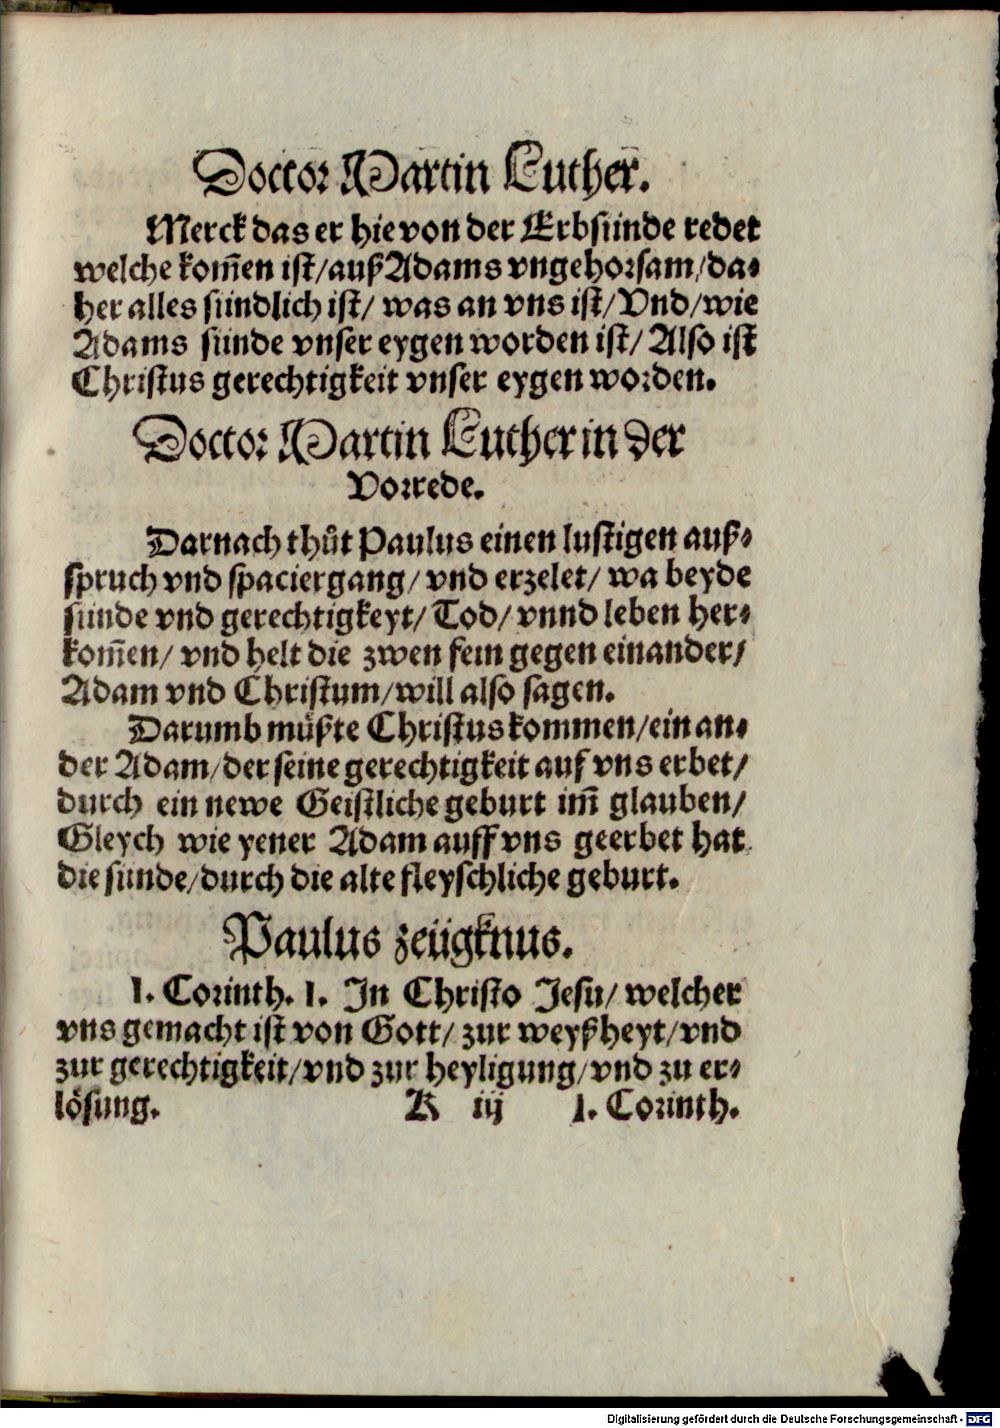 Doctor Martin Luther.
Merck das er hie von der Erbsünde redet
welche kom̄en ist/auß Adams vngehorsam/da⸗
her alles sündlich ist/ was an vns ist/Vnd/wie
Adams sünde vnser eygen worden ist/ Also ist
Christus gerechtigkeit vnser eygen worden.
Doctor Martin Luther in der
Vorrede.
Darnach thůt Paulus einen lustigen auß⸗
spruch vnd spaciergang/ vnd erzelet/ wa beyde
sünde vnd gerechtigkeyt/ Tod/ vnnd leben her⸗
kom̄en/ vnd helt die zwen fein gegen einander/
Adam vnd Christum/will also sagen.
Darumb müßte Christus kommen/ein an⸗
der Adam/der seine gerechtigkeit auf vns erbet/
durch ein newe Geistliche geburt im̄ glauben/
Gleych wie yener Adam auff vns geerbet hat
die sünde/durch die alte fleyschliche geburt.
Paulus zeügknus.
1. Corinth. 1. In Christo Jesu/ welcher
vns gemacht ist von Gott/ zur weyßheyt/vnd
zur gerechtigkeit/vnd zur heyligung/vnd zu er⸗
lösung. K iij 1. Corinth.
Digitalisierung gefördert durch die Deutsche Forschungsgemeinschaft - DFG